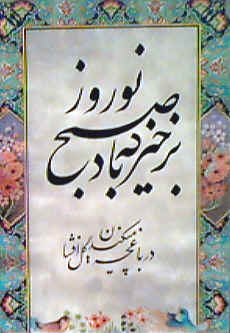 برخیز که باد صبح نوروز
در باغچه میکند گل افشان